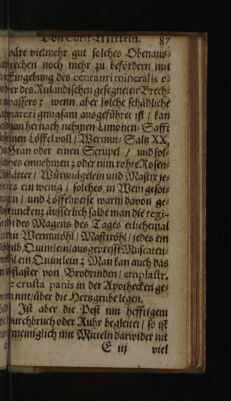 Von Schr-Mitteln. 87
wäre vielmehr gut solches Obenaus-
brechen noch mehr zu befördern mit
Eingebung des centauri mineralis o-
der des Rulandischen gesegneten Brech-
wassers; wenn aber solche schädliche
materi gnugsam ausgeführet ist / kan
man hernach nehmen Limonen-Safft
einen Löffel voll / Wermut-Saltz XX.
Gran oder einen Scrupel / und sol-
ches einnehmen; oder nim rohte Rosen-
blätter / Würtznägelein und Mastix je-
des ein wenig / solches in Wein gesot-
ten / und Löffelweise warm davon ge-
truncken; äusserlich salbe man die regi-
on des Magens des Tages etlichemal
mit Wermutöhl / Mastixöhl / jedes ein
halb Quintlein / ausgepreßt Muscaten-
öhl ein Quintlein; Man kan auch das
Pflaster von Brodrinden / emplastr.
de crusta panis in der Apothecken ge-
nannt / über die Hertzgrube legen.
Ist aber die Pest mit hefftigem
Durchbruch oder Ruhr begleitet / so ist
männiglich mit Mitteln darwider mit
E iij viel